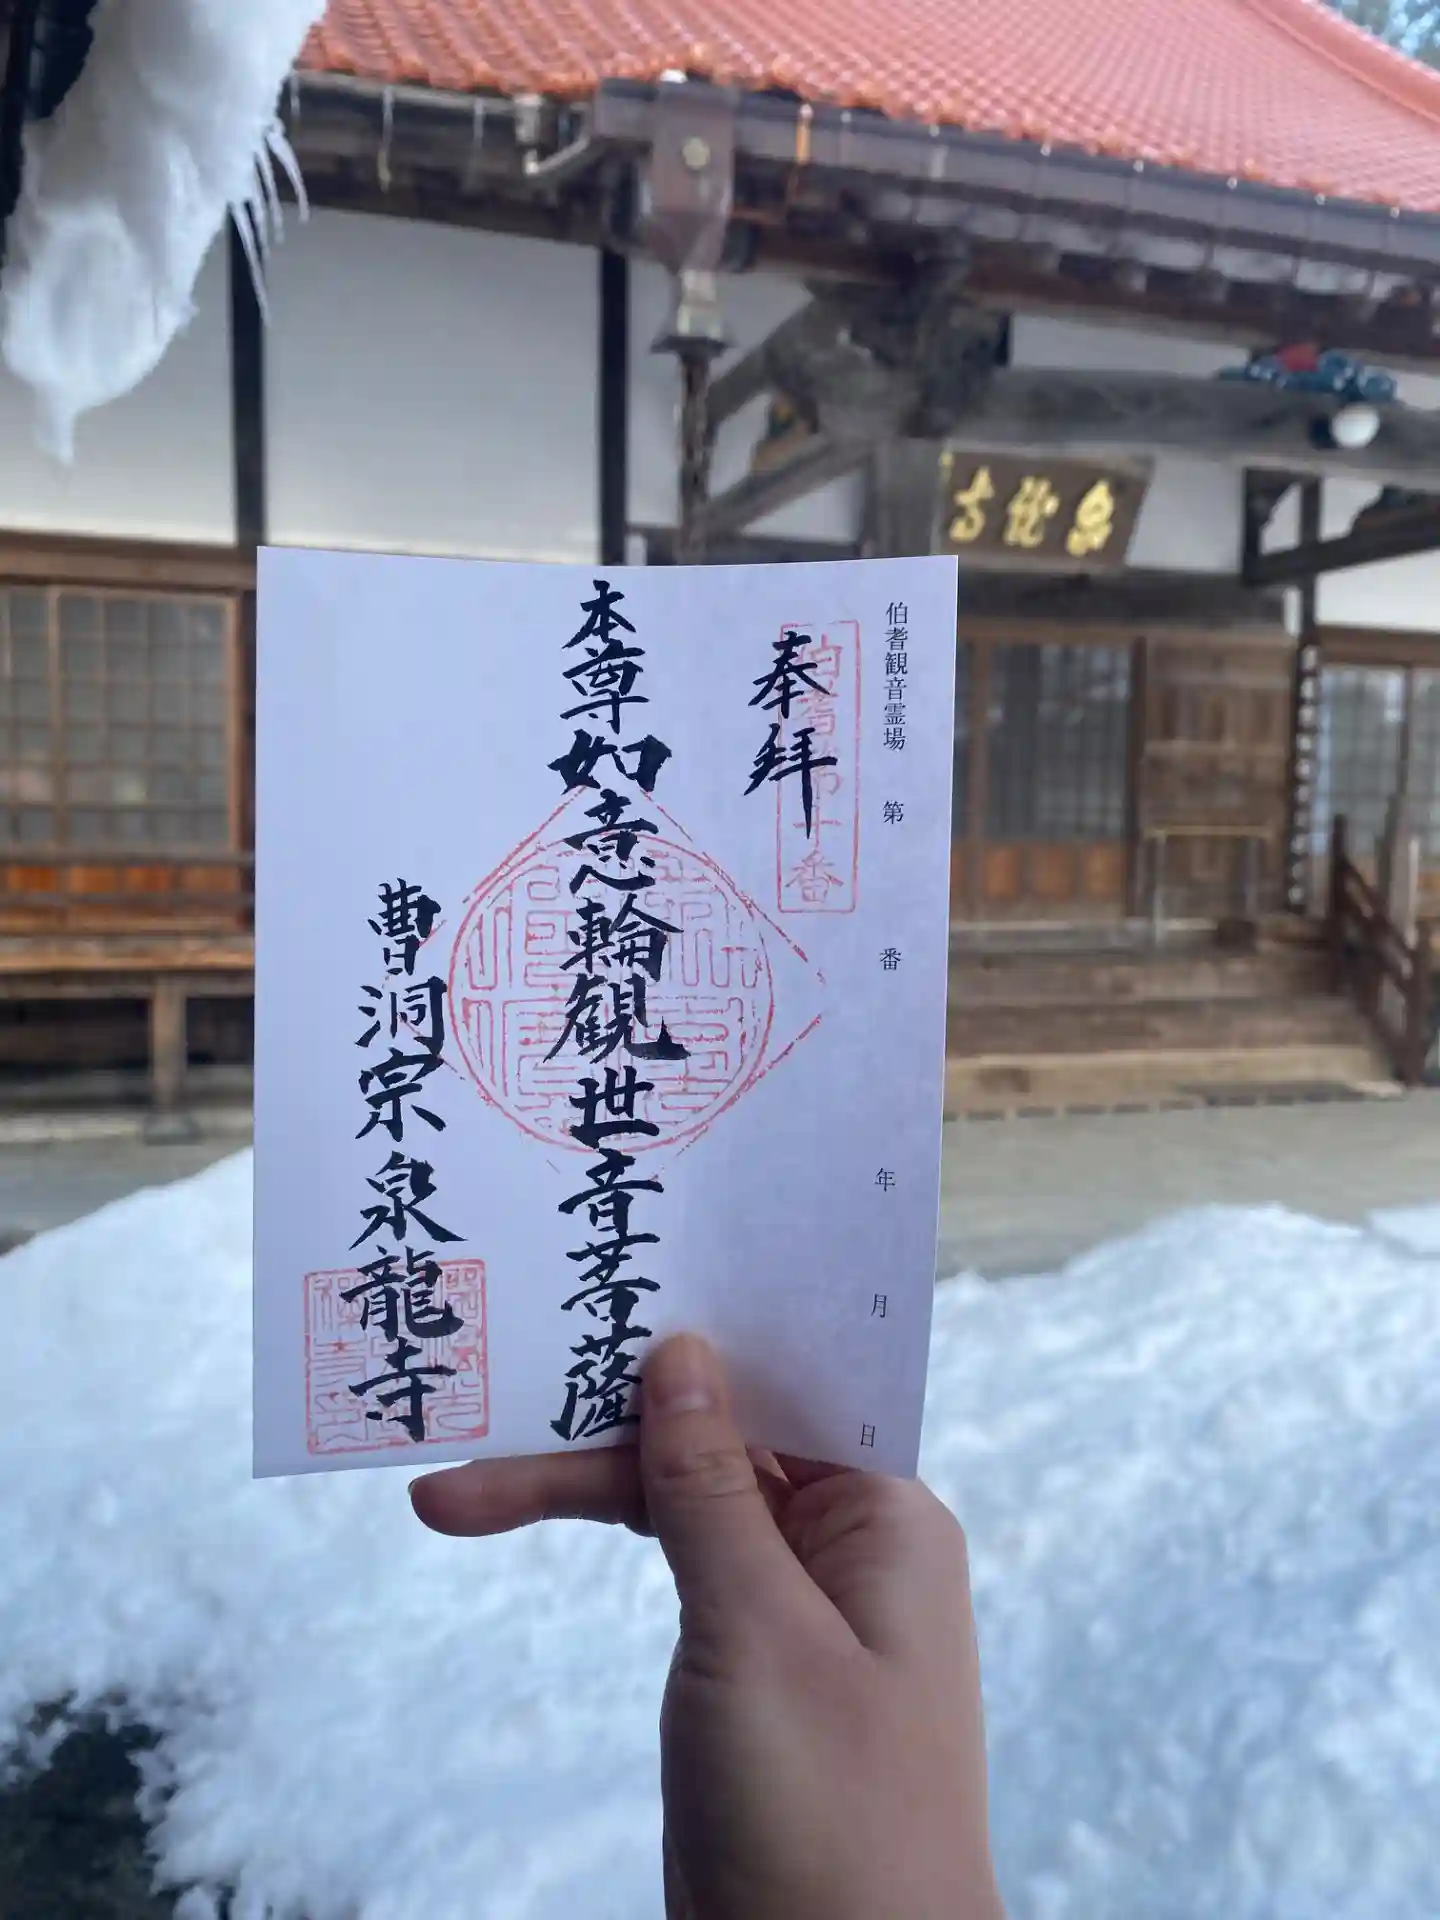 泉龍寺
伯耆観音霊場 第 番 年 月 日
奉拝
本尊如意輪観世音菩薩
曹洞宗泉龍寺